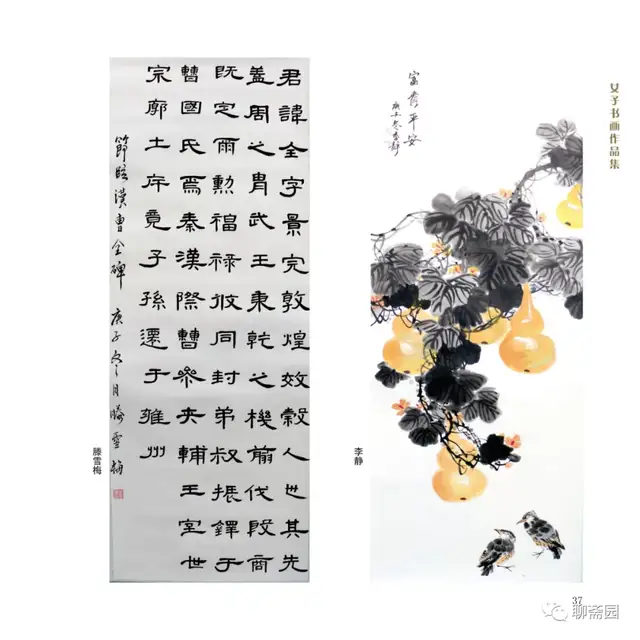 君諱全字景完敦煌效穀人世其先
蓋周之胄武王秉乾之機翦伐殷商
既定爾勳福禄攸同封弟叔振鐸于
曹國氏焉秦漢際曹參夾輔王室世
宗廓土斥竟子孫遷于雍州
節臨漢曹全碑 庚子冬月滕雪梅
滕雪梅
富貴平安
庚子冬李静
李静
女子书画作品集
37
聊斋园